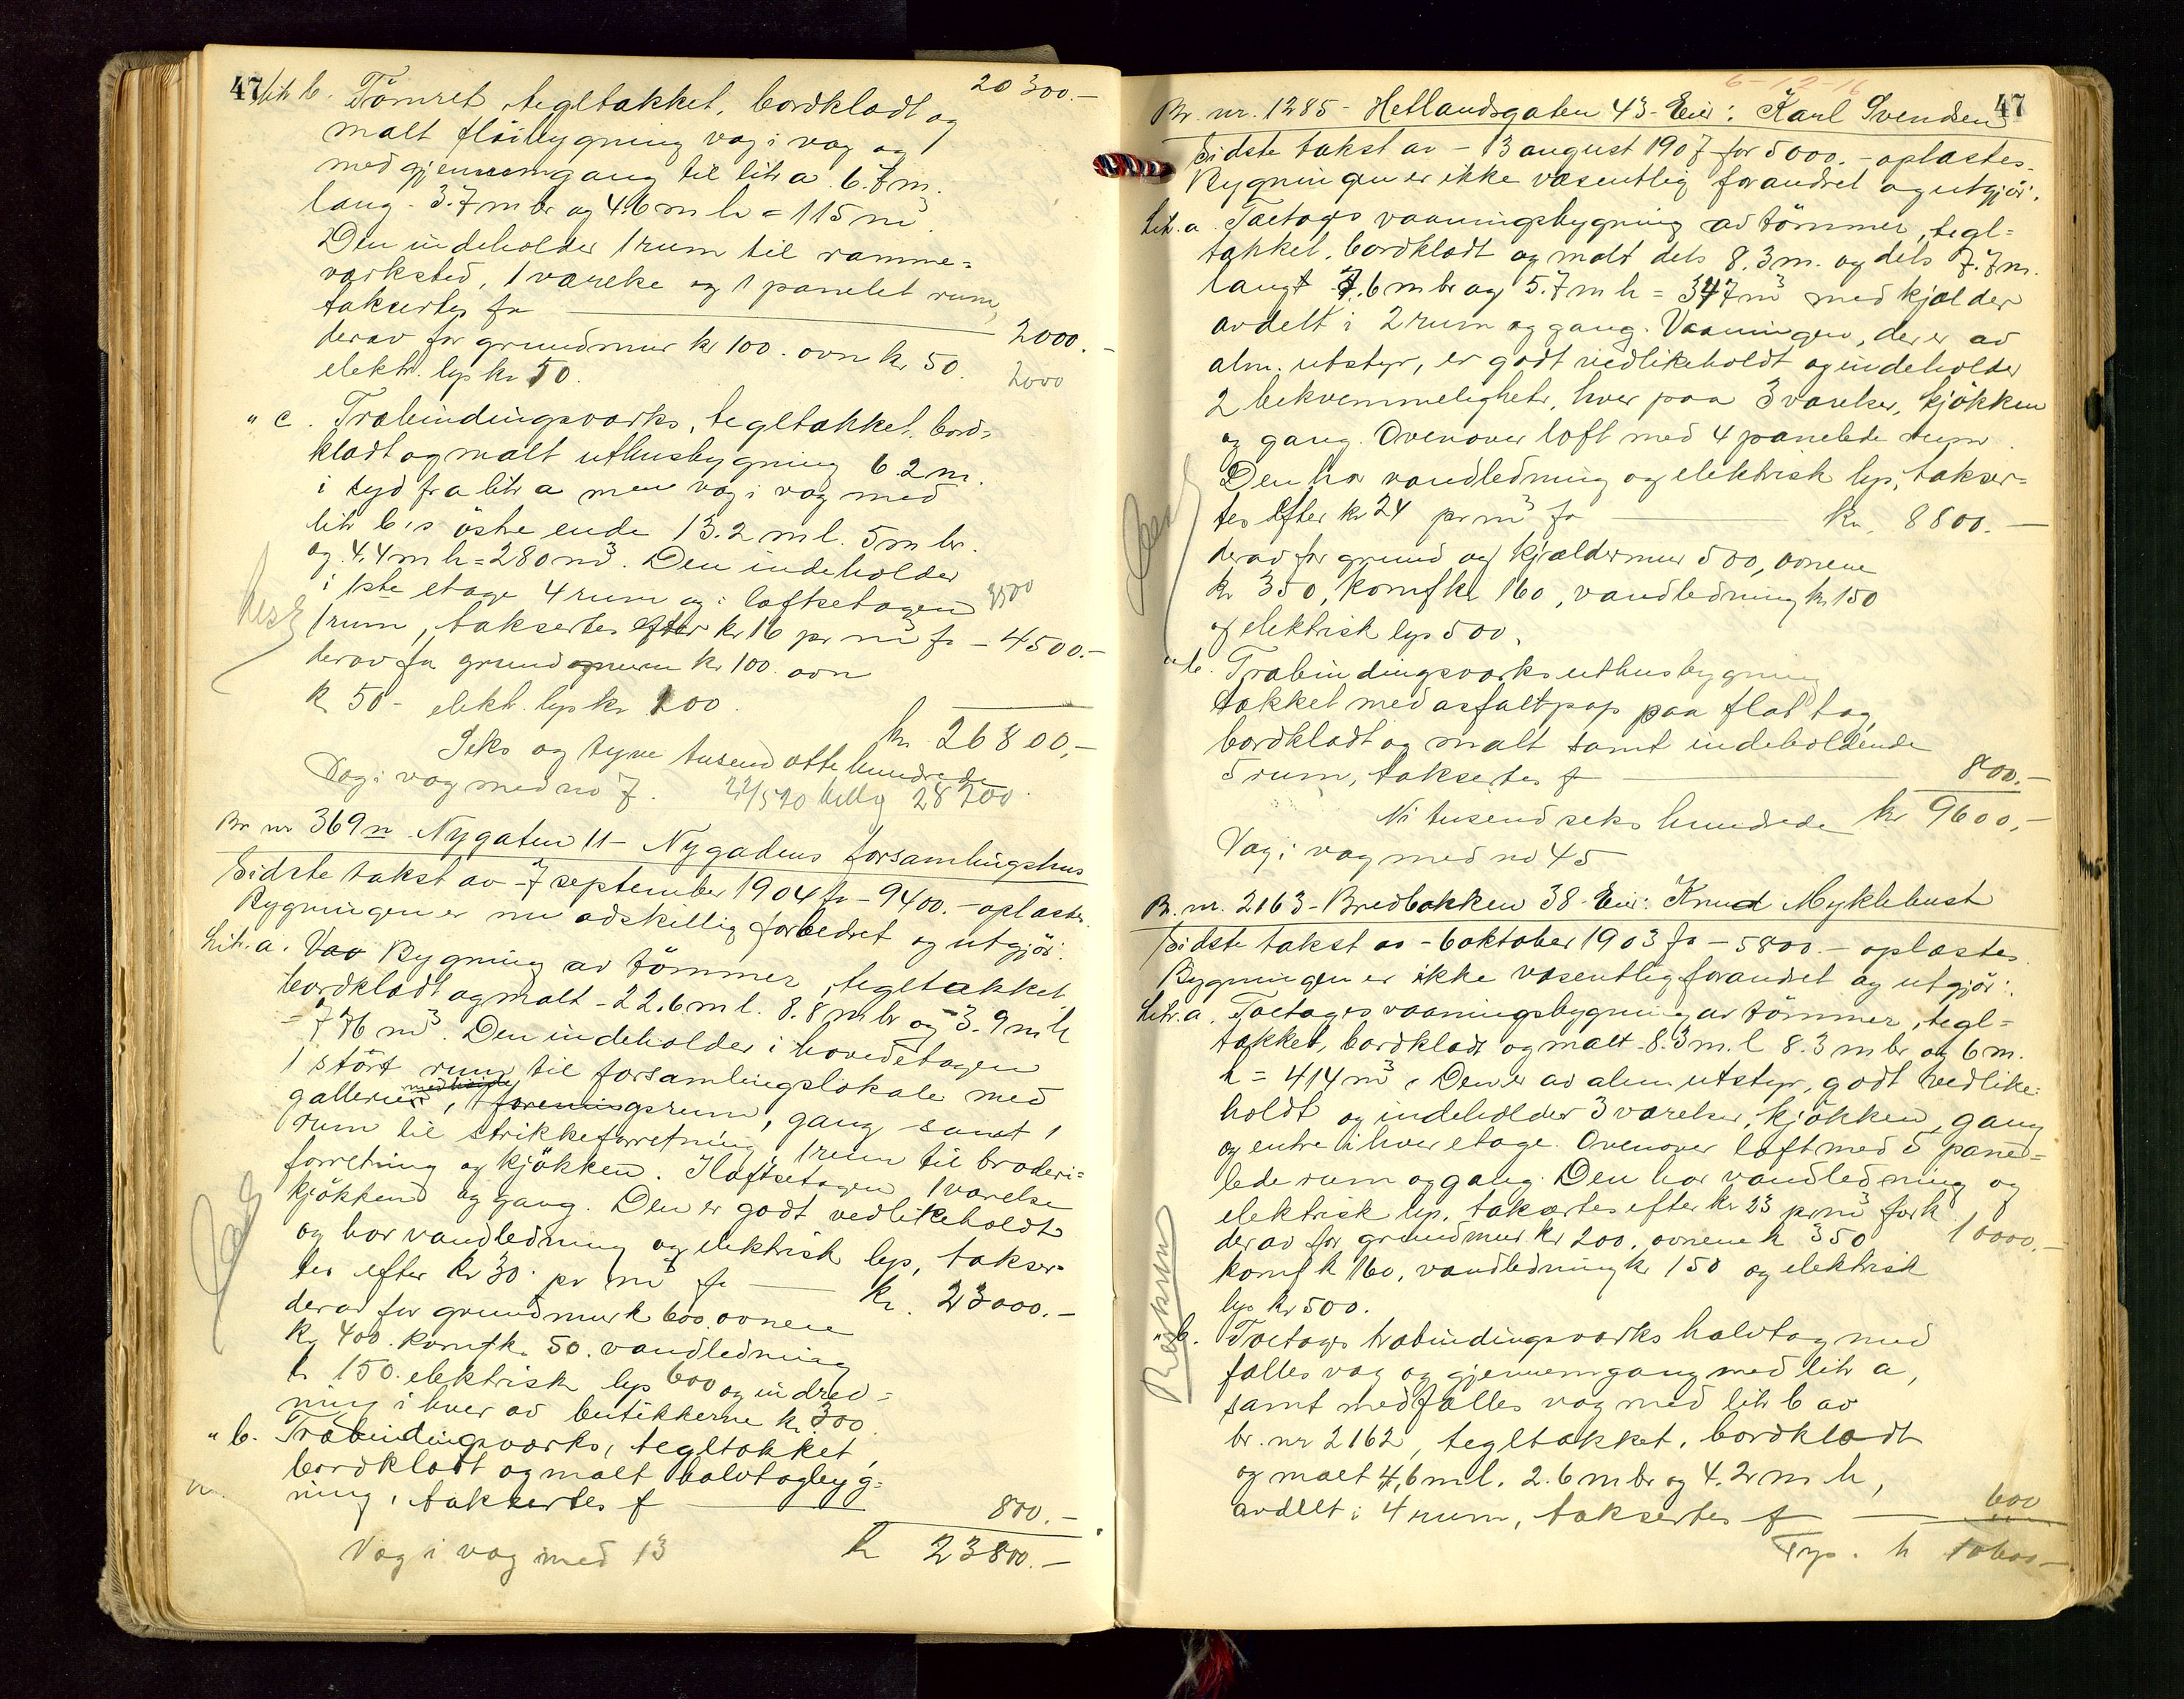 47
20300.-
lit b. Tömret, tegltækket, bordklædt og
malt flöibygning væg i væg og
med gjennemgang til litr a. 6.7 m.
lang - 3.7 m br og 4.6 m h = 115 m³.
Den indeholder 1 rum til ramme=
værksted, 1 værelse og 1 panelet rum,
taksertes for 2000.-
derav for grundmur kr 100. ovn kr. 50.
elektr. lys kr 50. 2000
" c. Træbindingsværks, tegltækket, bord=
klædt og malt uthusbygning 6.2 m.
i syd fra litr a men væg i væg med
litr b's östre ende 13.2 m l. 5 m br.
og 4.4 m h = 280 m³. Den indeholder
i 1ste etage 4 rum og i loftsetagen
1 rum, taksertes efter kr 16 pr m³ for - 4500.-
derav for grundmuren kr 100. ovn
kr 50 - elekt. lys kr 200.
kr 26800.-
Seks og tyve tusend otte hundrede
Væg i væg med no 7. 28200
Br nr 369 n Nygaten 11 - Nygadens forsamlingshus
Sidste takst av - 7 september 1904 for - 9400.- oplæstes.
Bygningen er nu adskillig forbedret og utgjör:
Litr. a. Bygning av tömmer, tegltækket,
bordklædt og malt - 22.6 m l. 8.8 m br og 3.9 m h
= 776 m³. Den indeholder i hovedetagen
1 stört rum til forsamlingslokale med
gallerier, 1 foreningsrum, gang samt 1
rum til strikkeforretning, 1 rum til broderi=
forretning og kjökken. I loftsetagen 1 værelse
kjökken og gang. Den er godt vedlikeholdt
og har vandledning og elektrisk lys, takser=
tes efter kr 30. pr m³ for kr. 23000.-
derav for grundmur kr 600. ovnene
kr 400. komf kr. 50. vandledning
kr 150. elektrisk lys 600 og indred=
ning i hver av butikkerne kr. 300.
" b. Træbindingsværks, tegltækket,
bordklædt og malt halvtagbyg=
ning, taksertes for 800.-
Væg i væg med 13 kr 23800.-
6-12-16
47
Br. nr. 1285 - Hetlandsgaten 43 - Eier: Karl Svendsen
Sidste takst av - 13 august 1907 for 5000.- oplæstes.
Bygningen er ikke væsentlig forandret og utgjör:
Litr. a. Toetages vaaningsbygning av tömmer, tegl=
tækket, bordklædt og malt dels 8.3 m. og dels 7.7 m.
langt 7.6 m br og 5.7 m h = 347 m³ med kjælder
avdelt i 2 rum og gang. Vaaningen, der er av
alm. utstyr, er godt vedlikeholdt og indeholder
2 bekvemmeligheter, hver paa 3 værelser, kjökken
og gang. Ovenover loft med 4 panelede rum.
Den har vandledning og elektrisk lys, takser=
tes efter kr 24 pr m³ for kr. 8800.-
derav for grund og kjældermur 500, ovnene
kr 350, komf kr 160, vandledning kr 150
og elektrisk lys 500.
" b. Træbindingsværks uthusbygning
tækket med asfaltpap paa flat tag,
bordklædt og malt samt indeholdende
5 rum, taksertes for 800.-
Ni tusend seks hundrede kr 9600.-
Væg i væg med no 45
Br. nr. 2163 - Bredbakken 38 - Eier: Knud Myklebust
Sidste takst av - 6 oktober 1903 for - 5800.- oplæstes.
Bygningen er ikke væsentlig forandret og utgjör:
Litr. a. Toetages vaaningsbygning av tömmer, tegl=
tækket, bordklædt og malt - 8.3 m. l 8.3 m br og 6 m.
h = 414 m³. Den er av alm utstyr, godt vedlike=
holdt og indeholder 3 værelser, kjökken, gang
og entre i hver etage. Ovenover loft med 5 pane=
lede rum og gang. Den har vandledning og
elektrisk lys, taksertes efter kr 23 pr m³ for kr
derav for grundmur kr 200, ovnene kr 350 10000.-
komf kr 160, vandledning kr 150 og elektrisk
lys kr 500.
" b. Toetages træbindingsværks halvtag med
fælles væg og gjennemgang med litr a,
samt med fælles væg med litr b av
br. nr 2162, tegltækket, bordklædt
og malt 4.6 m l. 2.6 m br og 4.2 m h,
avdelt i 4 rum, taksertes for 600
kr 10600.-
Reeksum